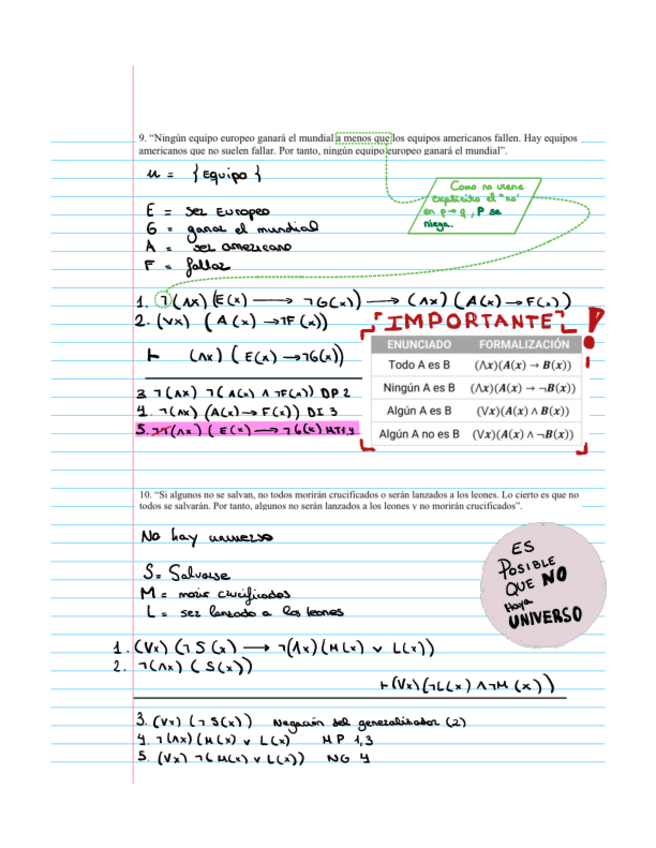 9. “Ningún equipo europeo ganará el mundial a menos que los equipos americanos fallen. Hay equipos
americanos que no suelen fallar. Por tanto, ningún equipo europeo ganará el mundial”.
u = {Equipo}
Como no viene
explícito el "no"
en p→q, P se
niega.
E = ser Europeo
G = ganar el mundial
A = ser americano
F = fallar
1. ¬(Λx)(E(x) → ¬G(x)) → (Λx)(A(x) → F(x))
2. (Vx) (A(x) → ¬F(x))
⊢ (Λx)(E(x) → ¬G(x))
3. ¬(Λx) ¬(A(x) Λ ¬F(x)) DP 2
4. ¬(Λx) (A(x) → F(x)) DI 3
5. ¬¬(Λx) (E(x) → ¬G(x) MT 1,4
IMPORTANTE!
ENUNCIADO FORMALIZACIÓN
Todo A es B (Λx)(A(x) → B(x))
Ningún A es B (Λx)(A(x) → ¬B(x))
Algún A es B (Vx)(A(x) ∧ B(x))
Algún A no es B (Vx)(A(x) ∧ ¬B(x))
10. “Si algunos no se salvan, no todos morirán crucificados o serán lanzados a los leones. Lo cierto es que no
todos se salvarán. Por tanto, algunos no serán lanzados a los leones y no morirán crucificados”.
No hay universo
S = Salvarse
M = morir crucificados
L = ser lanzado a los leones
ES
POSIBLE
QUE NO
Haya
UNIVERSO
1. (Vx) (¬S(x) → ¬(Λx)(M(x) v L(x))
2. ¬(Λx) (S(x))
⊢ (Vx)(¬L(x) Λ ¬M(x))
3. (Vx) (¬S(x)) Negación del generalizador (2)
4. ¬(Λx)(M(x) v L(x) MP 1,3
5. (Vx) ¬(M(x) v L(x)) NG 4